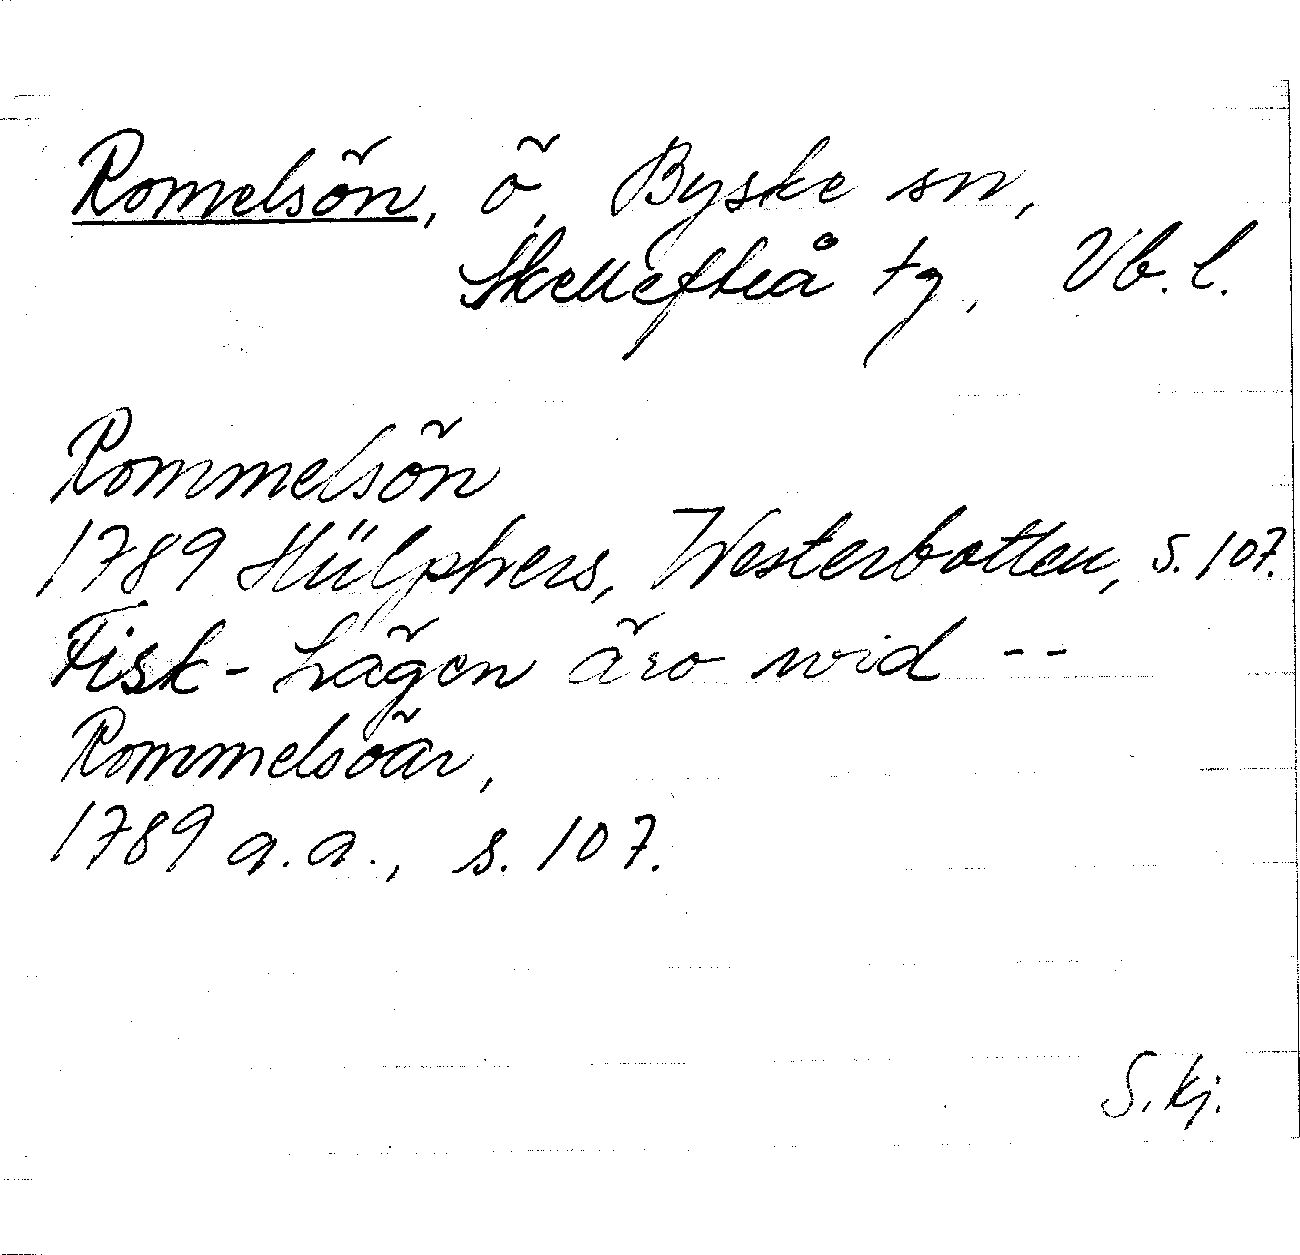 Romelsön, ö, Byske sn,
Skellefteå tg, Vb. l.
Rommelsön
1789 Hülphers, Westerbotten, s. 107.
Fisk-Lägen äro wid --
Rommelsöar,
1789 a.a., s. 107.
S. Kj.